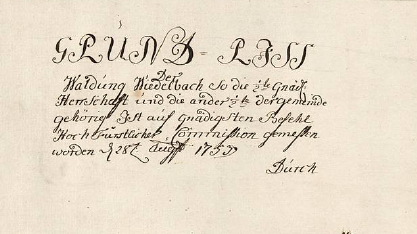 GRUND - RISS
Der
Waldung Wiedelbach So die ½te Gnäd.
Herrschaft und die ander ½te der gemeinde
gehörig Ist auf gnädigsten Befehl
Hoch Fürstlicher Commission gemessen
worden d 28t Augst
Durch